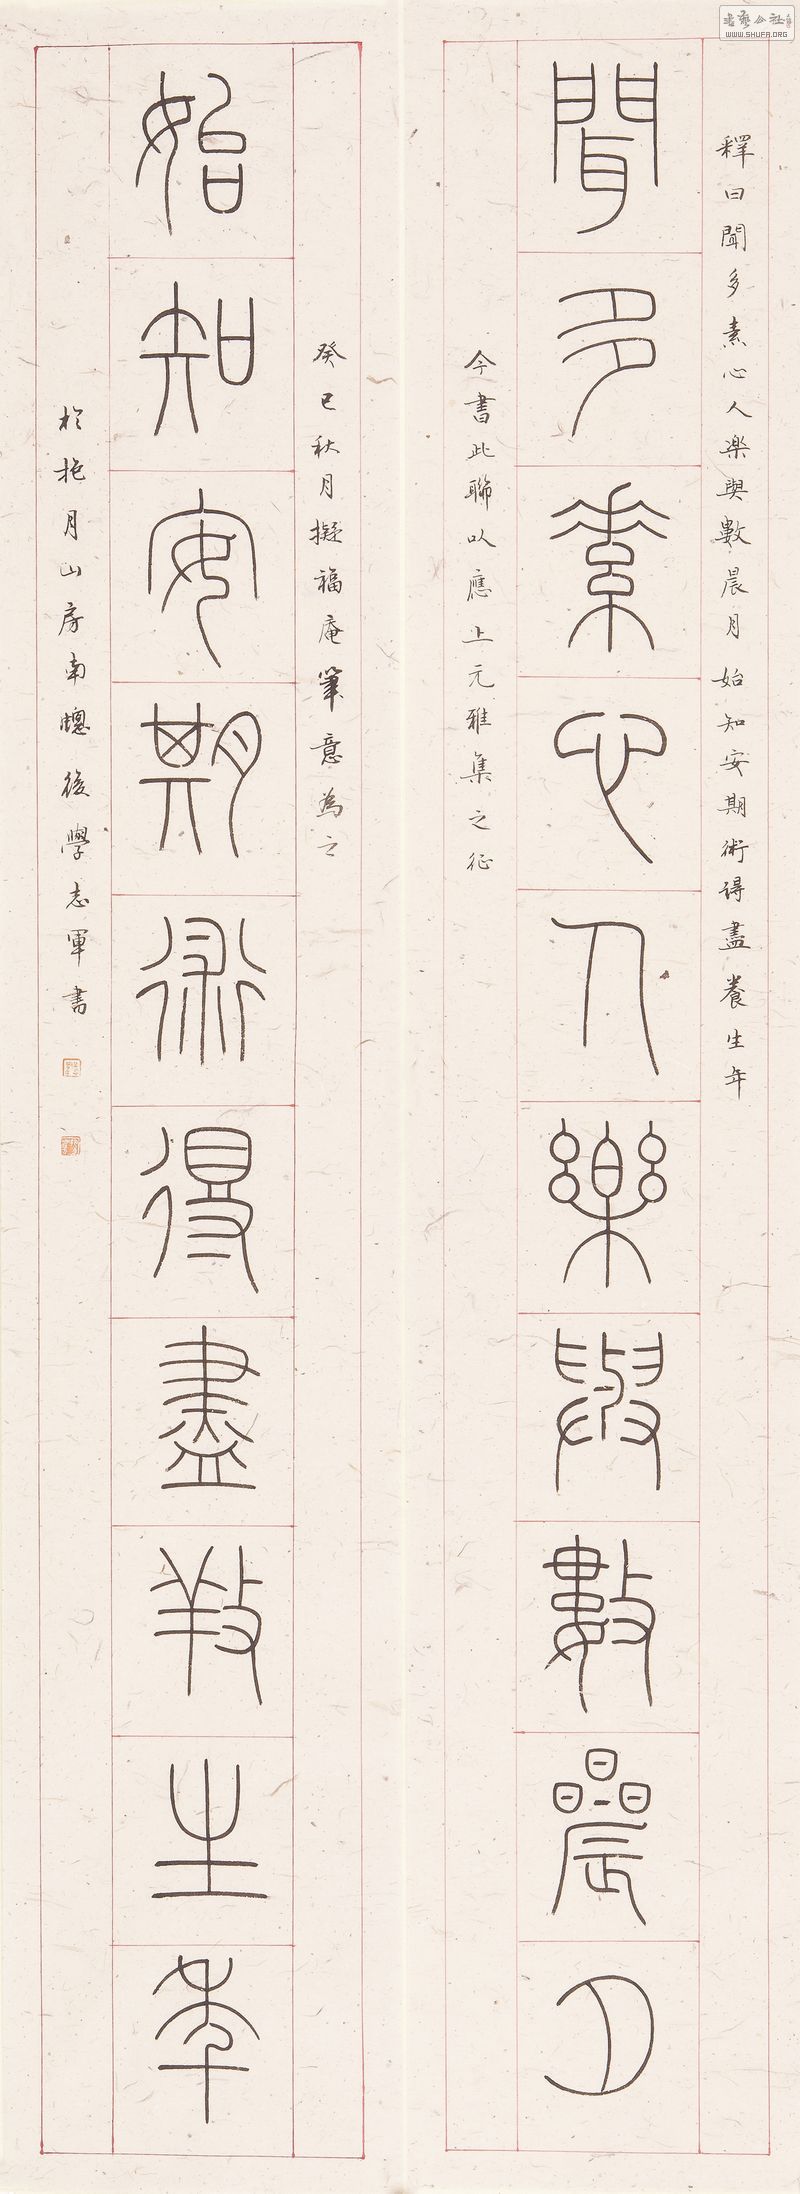 釋曰聞多素心人樂與數晨月始知安期術得盡養生年
聞多素心人樂與數晨月
今書此聯以應上元雅集之征
癸巳秋月擬福庵筆意為之
始知安期術得盡養生年
於抱月山房南窗後學志軍書
書藝公社
WWW.SHUFA.ORG